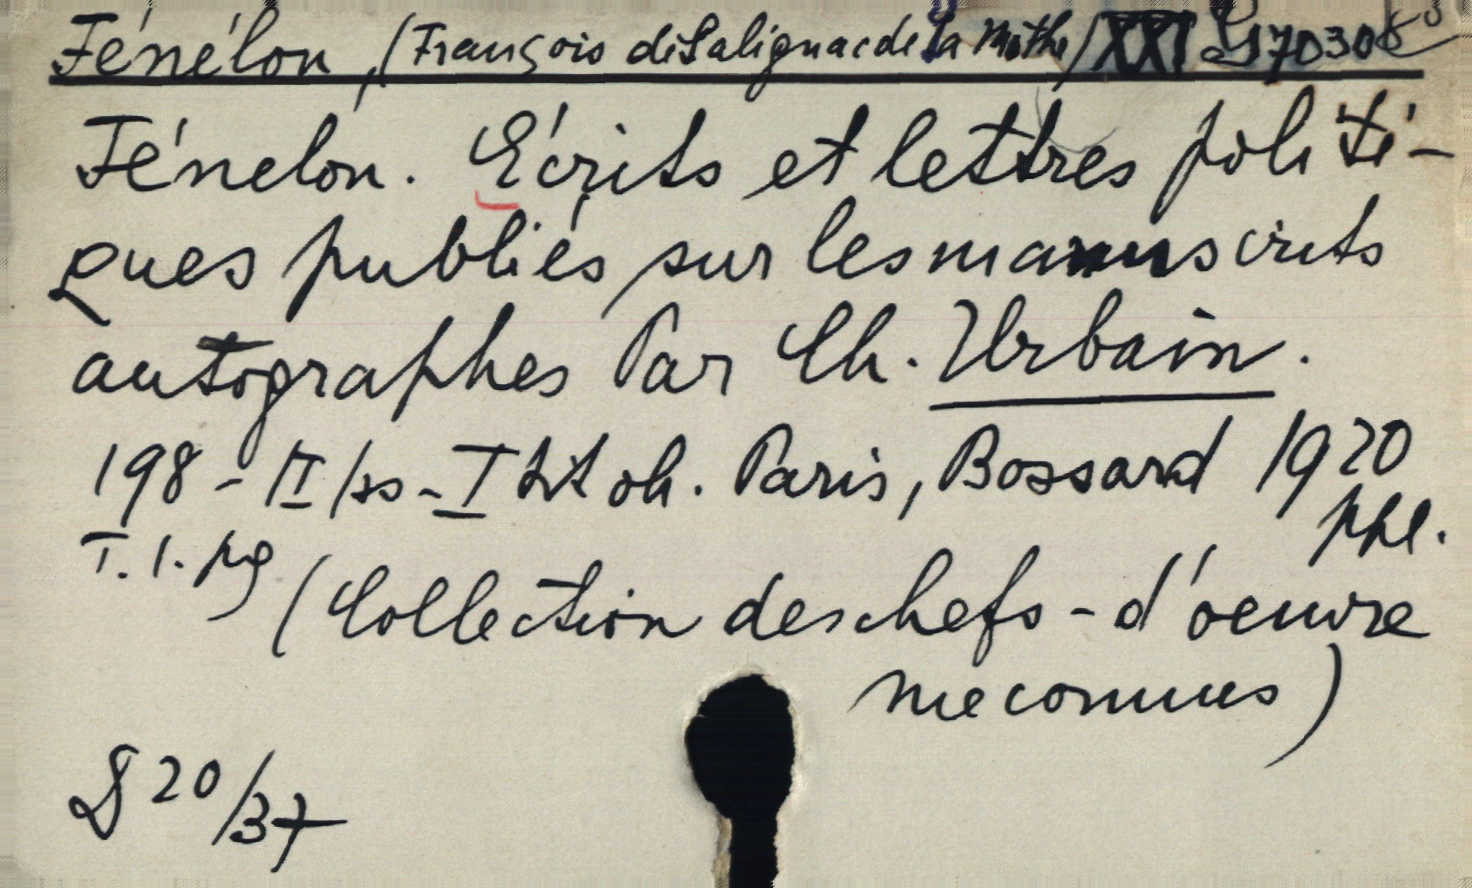 Fénélon, (François de Salignac de la Mothe) XXI S 170308
Fénelon. Écrits et lettres politi-
ques publiés sur les manuscrits
autographes Par Ch. Urbain.
198-II/ss-I tit oh. Paris, Bossard 1920
T. 1. pg ppl.
(Collection des chefs-d'oeuvre
meconnus)
S 20/37